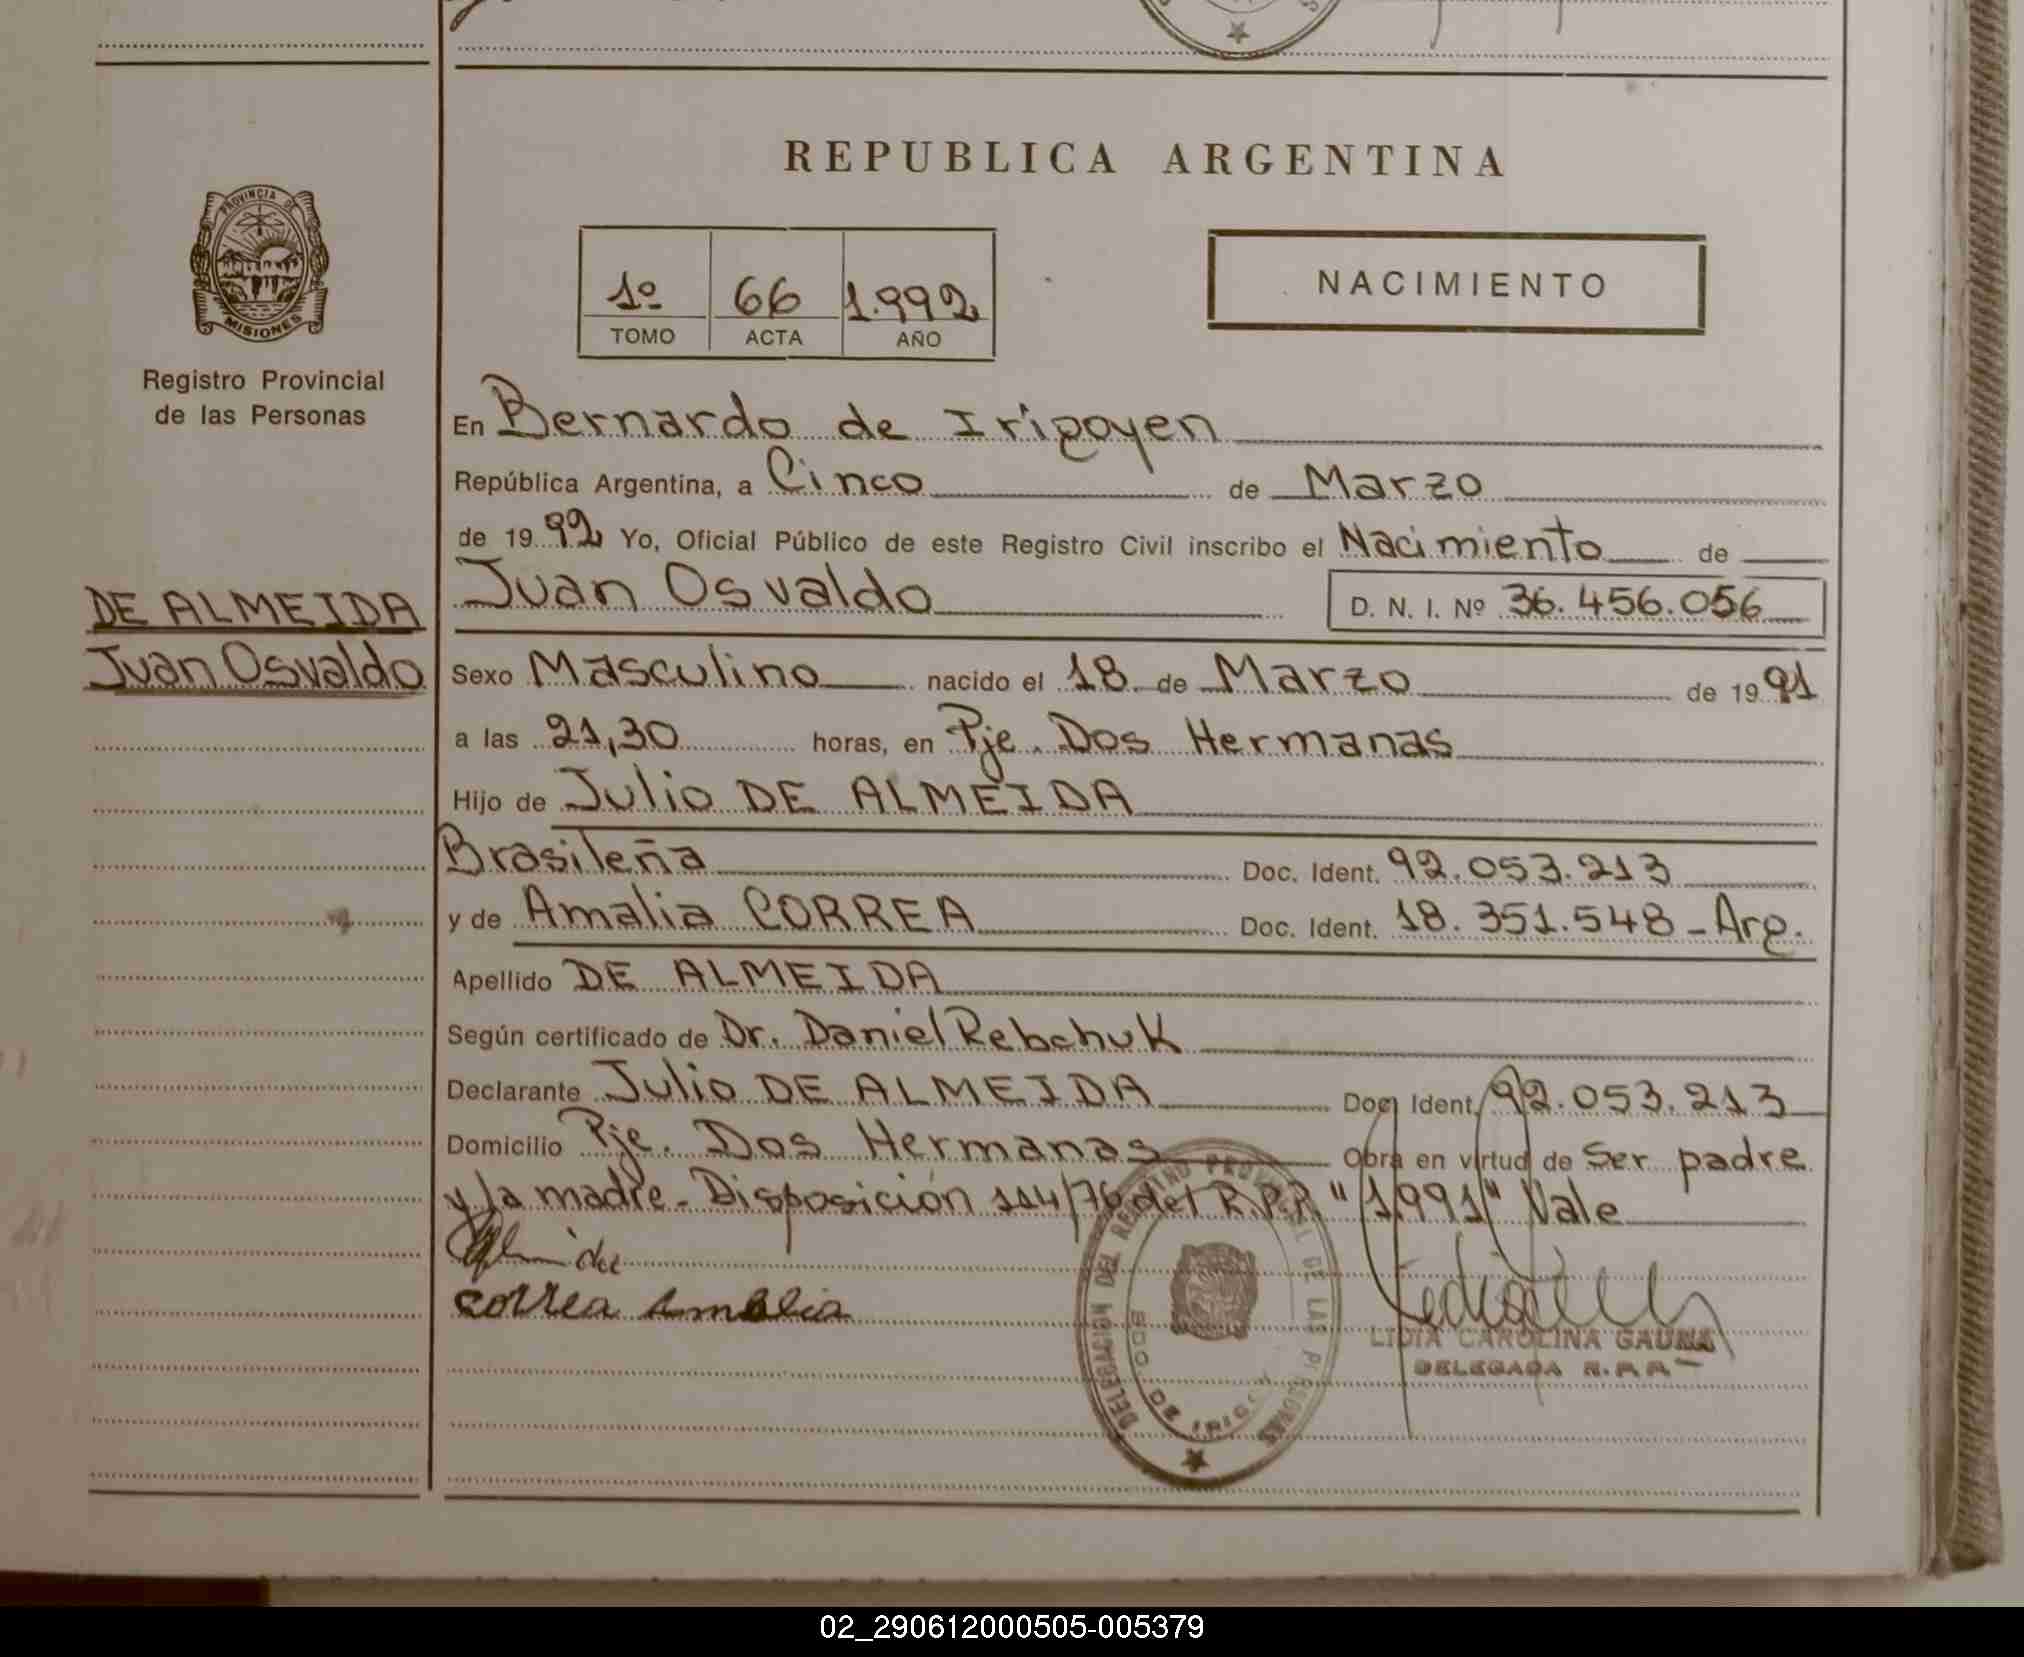 REPUBLICA ARGENTINA
PROVINCIA DE
MISIONES
Registro Provincial
de las Personas
1º 66 1.992
TOMO ACTA AÑO
NACIMIENTO
En Bernardo de Irigoyen
República Argentina, a Cinco de Marzo
de 19 92 Yo, Oficial Público de este Registro Civil inscribo el Nacimiento de
Juan Osvaldo D. N. I. Nº 36.456.056
DE ALMEIDA
Juan Osvaldo
Sexo Masculino nacido el 18 de Marzo de 19 91
a las 21,30 horas, en Pje. Dos Hermanas
Hijo de Julio DE ALMEIDA
Brasileña Doc. Ident. 92.053.213
y de Amalia CORREA Doc. Ident. 18.351.548 - Arg.
Apellido DE ALMEIDA
Según certificado de Dr. Daniel Rebchuk
Declarante Julio DE ALMEIDA Doc. Ident. 92.053.213
Domicilio Pje. Dos Hermanas Obra en virtud de Ser padre
y la madre - Disposición 114/76 del R.P.P. "1991" Vale
correa Amalia
DELEGACION DEL REGISTRO PROVINCIAL DE LAS PERSONAS
BDO. DE IRIGOYEN
LIDIA CAROLINA GAUNA
DELEGADA R.P.P.
02_290612000505-005379